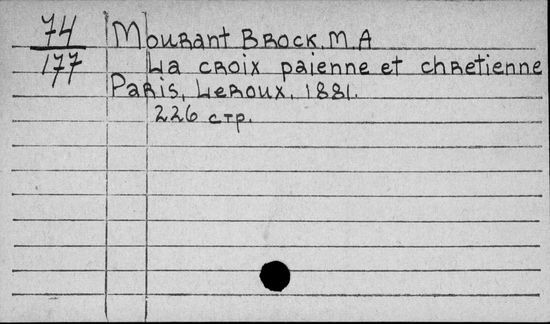 74
177
Mourant Brock, M.A
La croix paienne et chretienne
Paris, Leroux, 1881.
226 стр.